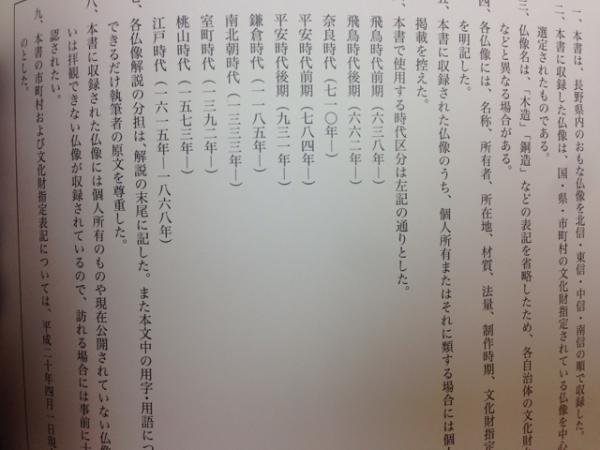 一、本書は、長野県内のおもな仏像を北信・東信・中信・南信の順で収録した。
二、本書に収録した仏像は、国・県・市町村の文化財指定されている仏像を中心
選定されたものである。
三、仏像名は、「木造」「銅造」などの表記を省略したため、各自治体の文化財
などと異なる場合がある。
四、各仏像には、名称、所有者、所在地、材質、法量、制作時期、文化財指定
を明記した。
五、本書に収録された仏像のうち、個人所有またはそれに類する場合には個人
掲載を控えた。
六、本書で使用する時代区分は左記の通りとした。
飛鳥時代前期（六三八年―）
飛鳥時代後期（六六二年―）
奈良時代（七一〇年―）
平安時代前期（七八四年―）
平安時代後期（九三一年―）
鎌倉時代（一一八五年―）
南北朝時代（一三三三年―）
室町時代（一三九二年―）
桃山時代（一五七三年―）
江戸時代（一六一五年―一八六八年）
七、各仏像解説の分担は、解説の末尾に記した。また本文中の用字・用語につ
できるだけ執筆者の原文を尊重した。
八、本書に収録された仏像には個人所有のものや現在公開されていない仏像
いは拝観できない仏像が収録されているので、訪れる場合には事前に
認されたい。
九、本書の市町村および文化財指定表記については、平成二十年四月一日現
のとした。